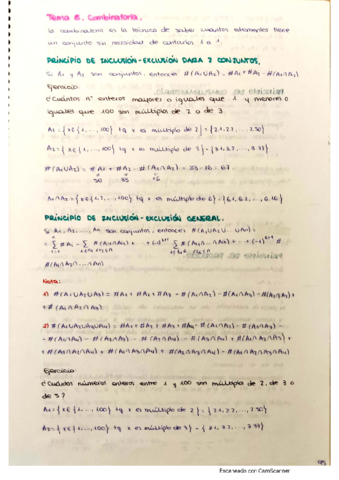 Tema 8. Combinatoria.
La combinatoria es la técnica de saber cuántos elementos tiene
un conjunto sin necesidad de contarlos 1 a 1.
PRINCIPIO DE INCLUSIÓN-EXCLUSIÓN PARA 2 CONJUNTOS.
Si A1 y A2 son conjuntos, entonces #(A1∪A2) = #A1 + #A2 - #(A1∩A2)
Ejercicio
¿Cuántos nº enteros mayores o iguales que 1 y menores o
iguales que 100 son múltiplos de 2 o de 3.
A1 = {x∈{1,...,100} tq x es múltiplo de 2} = {2·1, 2·2, ..., 2·50}
A2 = {x∈{1,...,100} tq x es múltiplo de 3} = {3·1, 3·2, ..., 3·33}
#(A1∪A2) = #A1 + #A2 - #(A1∩A2) = 83 - 16 = 67
50 33 16
A1∩A2 = {x∈{1,...,100} tq x es múltiplo de 6} = {6·1, 6·2, ..., 6·16}
PRINCIPIO DE INCLUSIÓN-EXCLUSIÓN GENERAL.
Si A1, A2, ..., An son conjuntos, entonces #(A1∪A2∪ ... ∪An) =
#(A1∩A2∩ ... ∩An)
Nota:
1) #(A1∪A2∪A3) = #A1 + #A2 + #A3 - #(A1∩A2) - #(A1∩A3) - #(A2∩A3) +
+ #(A1∩A2∩A3)
2) #(A1∪A2∪A3∪A4) = #A1 + #A2 + #A3 + #A4 - #(A1∩A2) - #(A1∩A3) -
Ejercicio
¿Cuántos números enteros entre 1 y 100 son múltiplo de 2, de 3 o
de 5?
A1 = {x∈{1,...,100} tq x es múltiplo de 2} = {2·1, 2·2, ..., 2·50}
A2 = {x∈{1,...,100} tq x es múltiplo de 3} = {3·1, 3·2, ..., 3·33}
Escaneado con CamScanner